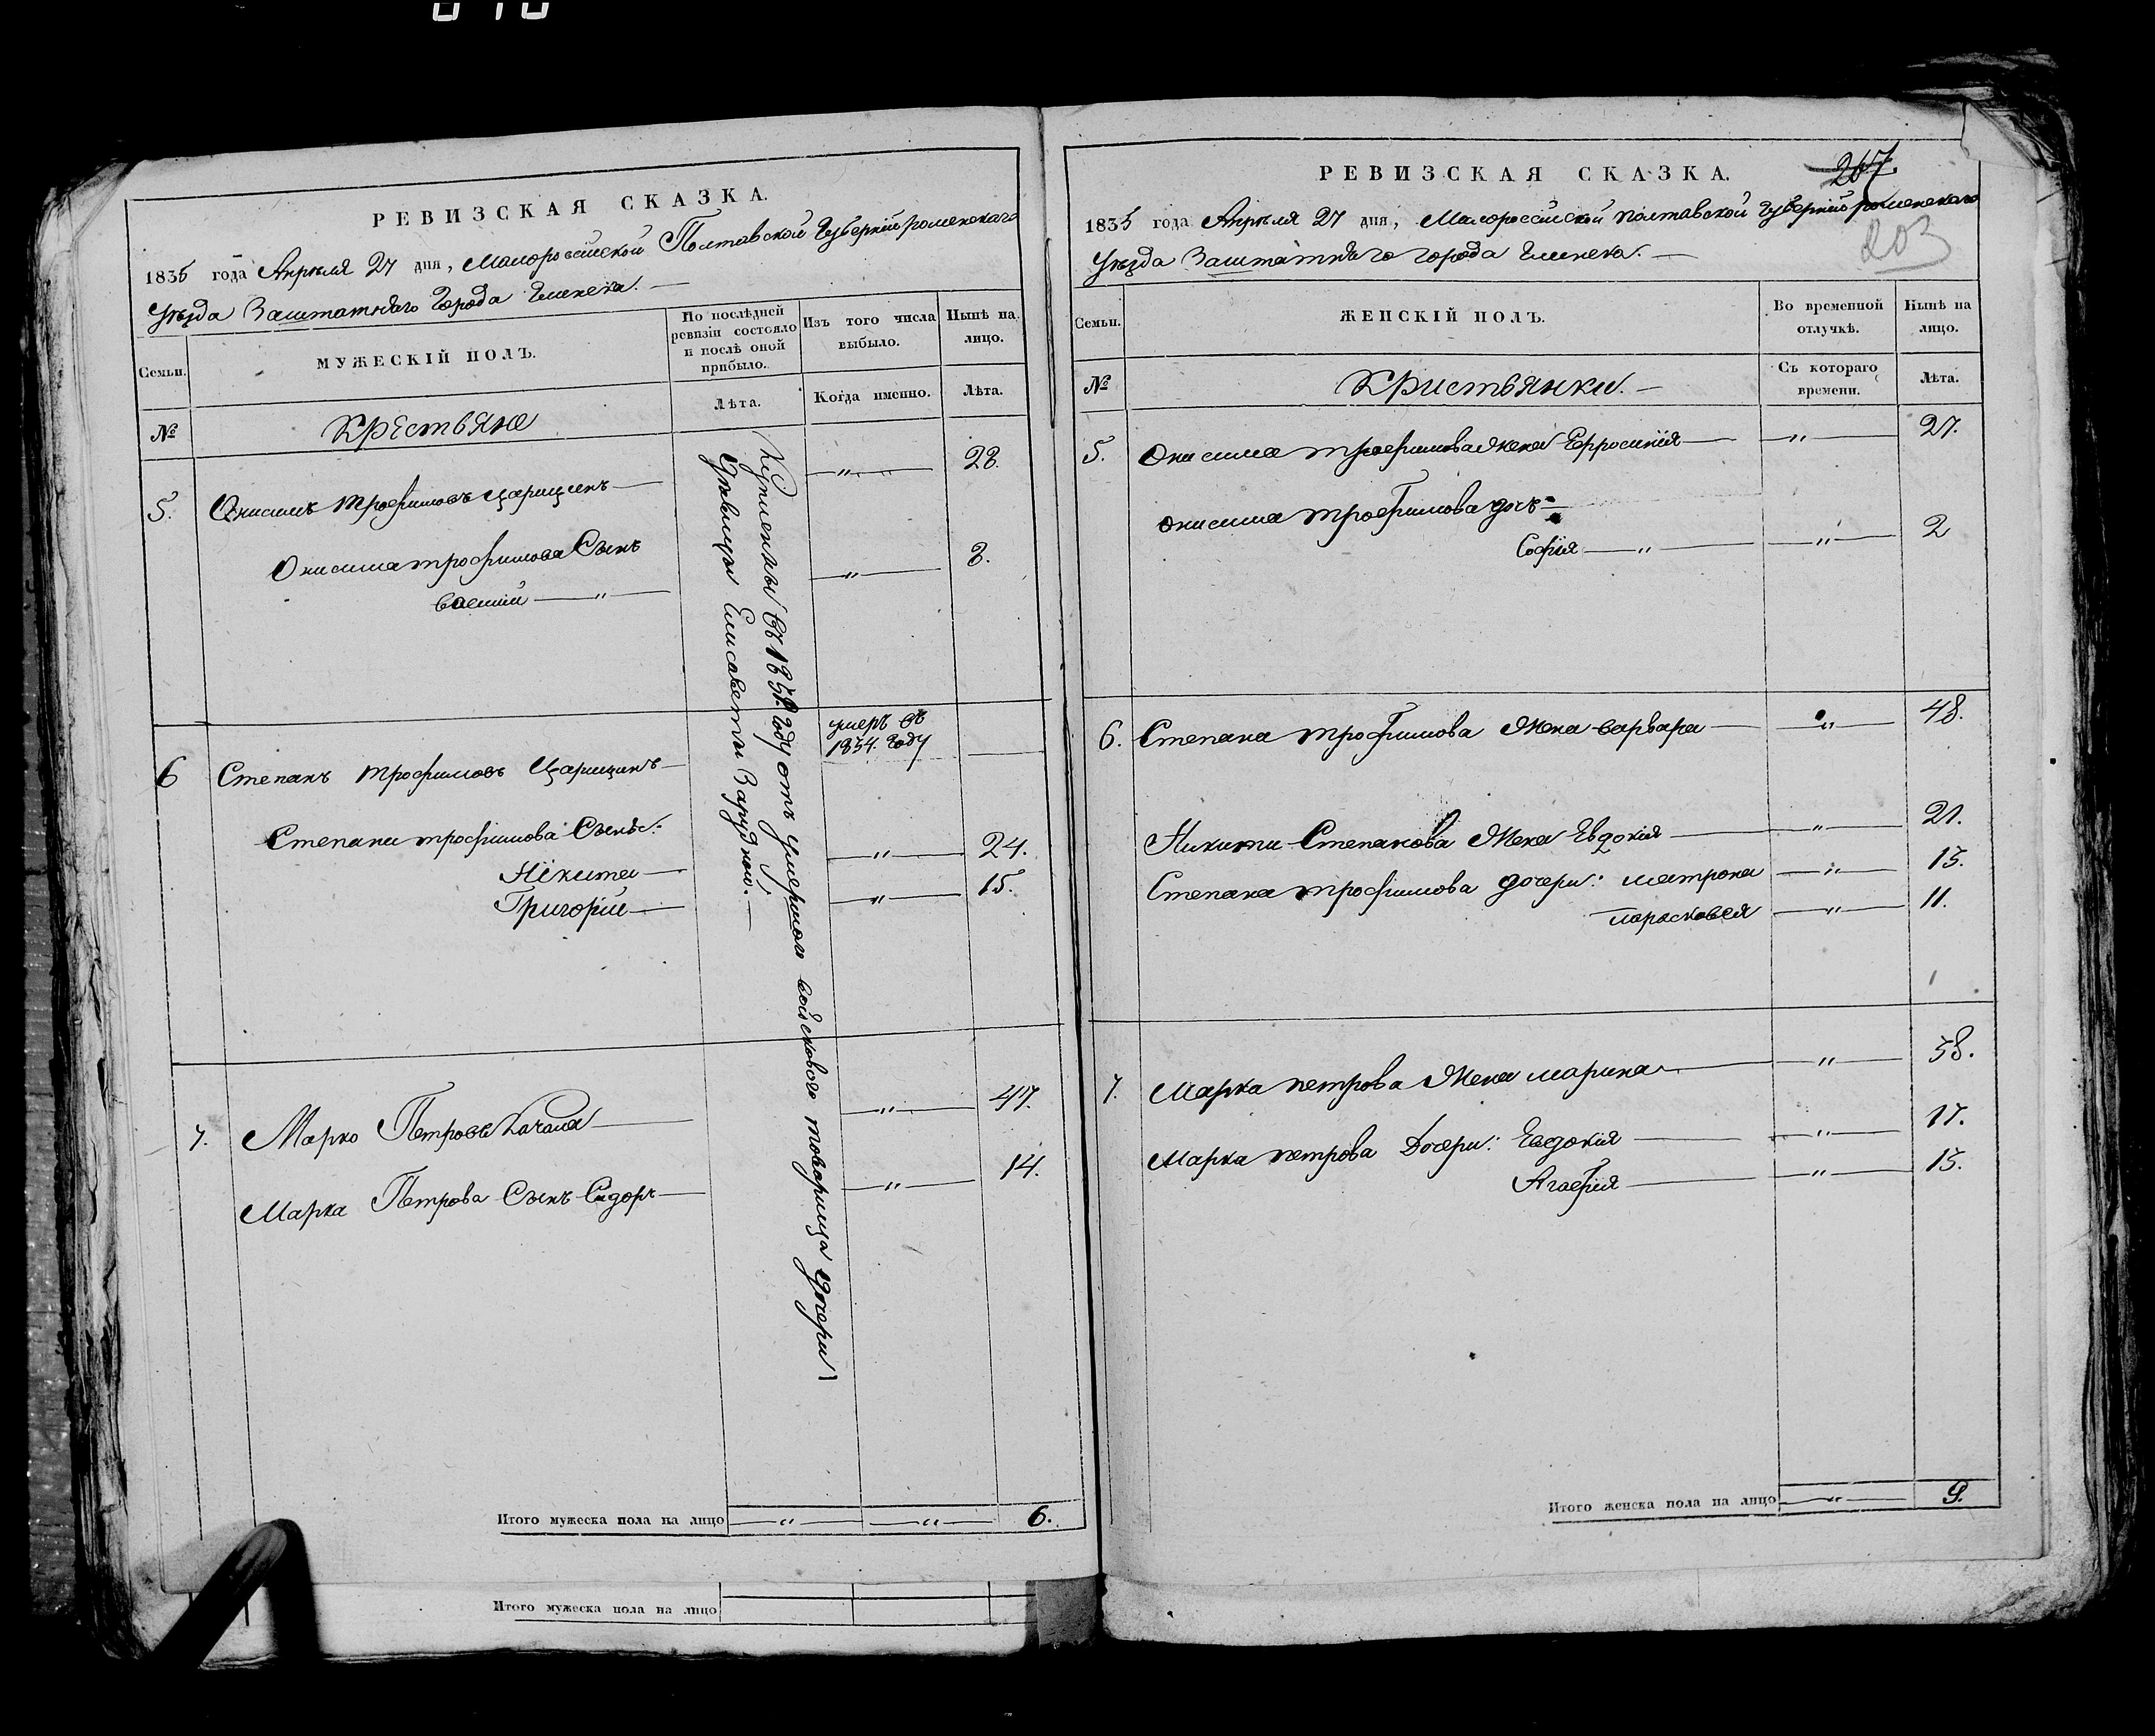 РЕВИЗСКАЯ СКАЗКА.
1835 года Апреля 27 дня, Малороссійской Полтавской Губерніи роменскаго
Уѣзда Заштатнѣго Города Глинска.
Семьи.
МУЖЕСКІЙ ПОЛЪ.
По послѣдней ревизіи состояло и послѣ оной прибыло.
Изъ того числа выбыло.
Нынѣ на лицо.
№
Крестьяне
Лѣта.
Когда именно.
Лѣта.
5. Онисимъ трофимовъ Царицинъ — „ — 28.
Онисима трофимова Сынъ
василий — „ — „ — 8.
6 Степанъ трофимовъ Царицинъ — умеръ въ
1834. Году —
Степана трофимова Сынъ:
Нікита — „ — 24.
Григорій — „ — 15.
7. Марко Петровъ — „ — 47.
Марка Петрова Сынъ Сидоръ — „ — 14.
Купленны въ Году отъ умершого войскового товарища дочери
Дѣвицы Елисаветы Зарудной. —
Итого мужеска пола на лицо — „ — — „ — 6.
Итого мужеска пола на лицо
РЕВИЗСКАЯ СКАЗКА.
267.
203
1835 года Апрѣля 27 дня, Малороссійской полтавской Губерніи роменскаго
Уѣзда Заштатнѣго города Глинска. —
Семьи.
ЖЕНСКІЙ ПОЛЪ.
Во временной отлучкѣ.
Нынѣ на лицо.
№
Кристьянки. —
Съ котораго времени.
Лѣта.
5. Онисима трофимова жена Ефросинія — „ — 27.
Онисима трофимова дочь
Софія — „ — „ — 2
6. Степана трофимова Жена варвара — „ — 48.
Никити Степанова Жена Евдокія — „ — 21.
Степана трофимова дочери: матрона — „ — 13.
парасковея — „ — 11.
7. Марка петрова Жена марина — „ — 38.
Марка петрова Дочери: Евдокія — „ — 17.
Агафія — „ — 13.
Итого женска пола на лицо — „ — 9.